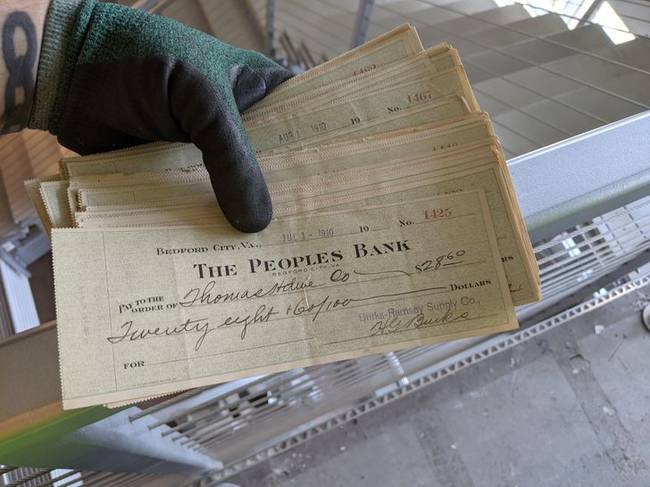 1462
AUG 1 1910 19 No. 1467
BEDFORD CITY, VA., JUL 1 - 1910 19 No. 1425
THE PEOPLES BANK
BEDFORD CITY, VA.
PAY TO THE
ORDER OF Thomas Hdwe Co $28 60
Twenty eight + 60/100 DOLLARS
Burks-Ramsey Supply Co.,
FOR